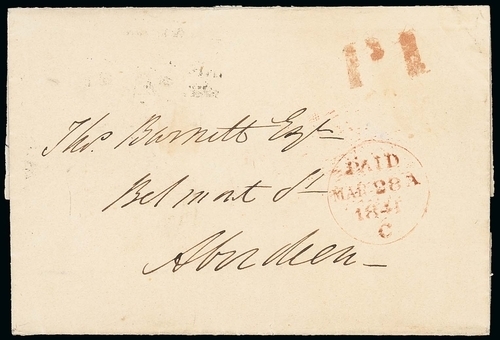 P1
Thos. Burnett Esqr
Belmont St
Aberdeen
PAID
MAR 28 A
1841
C